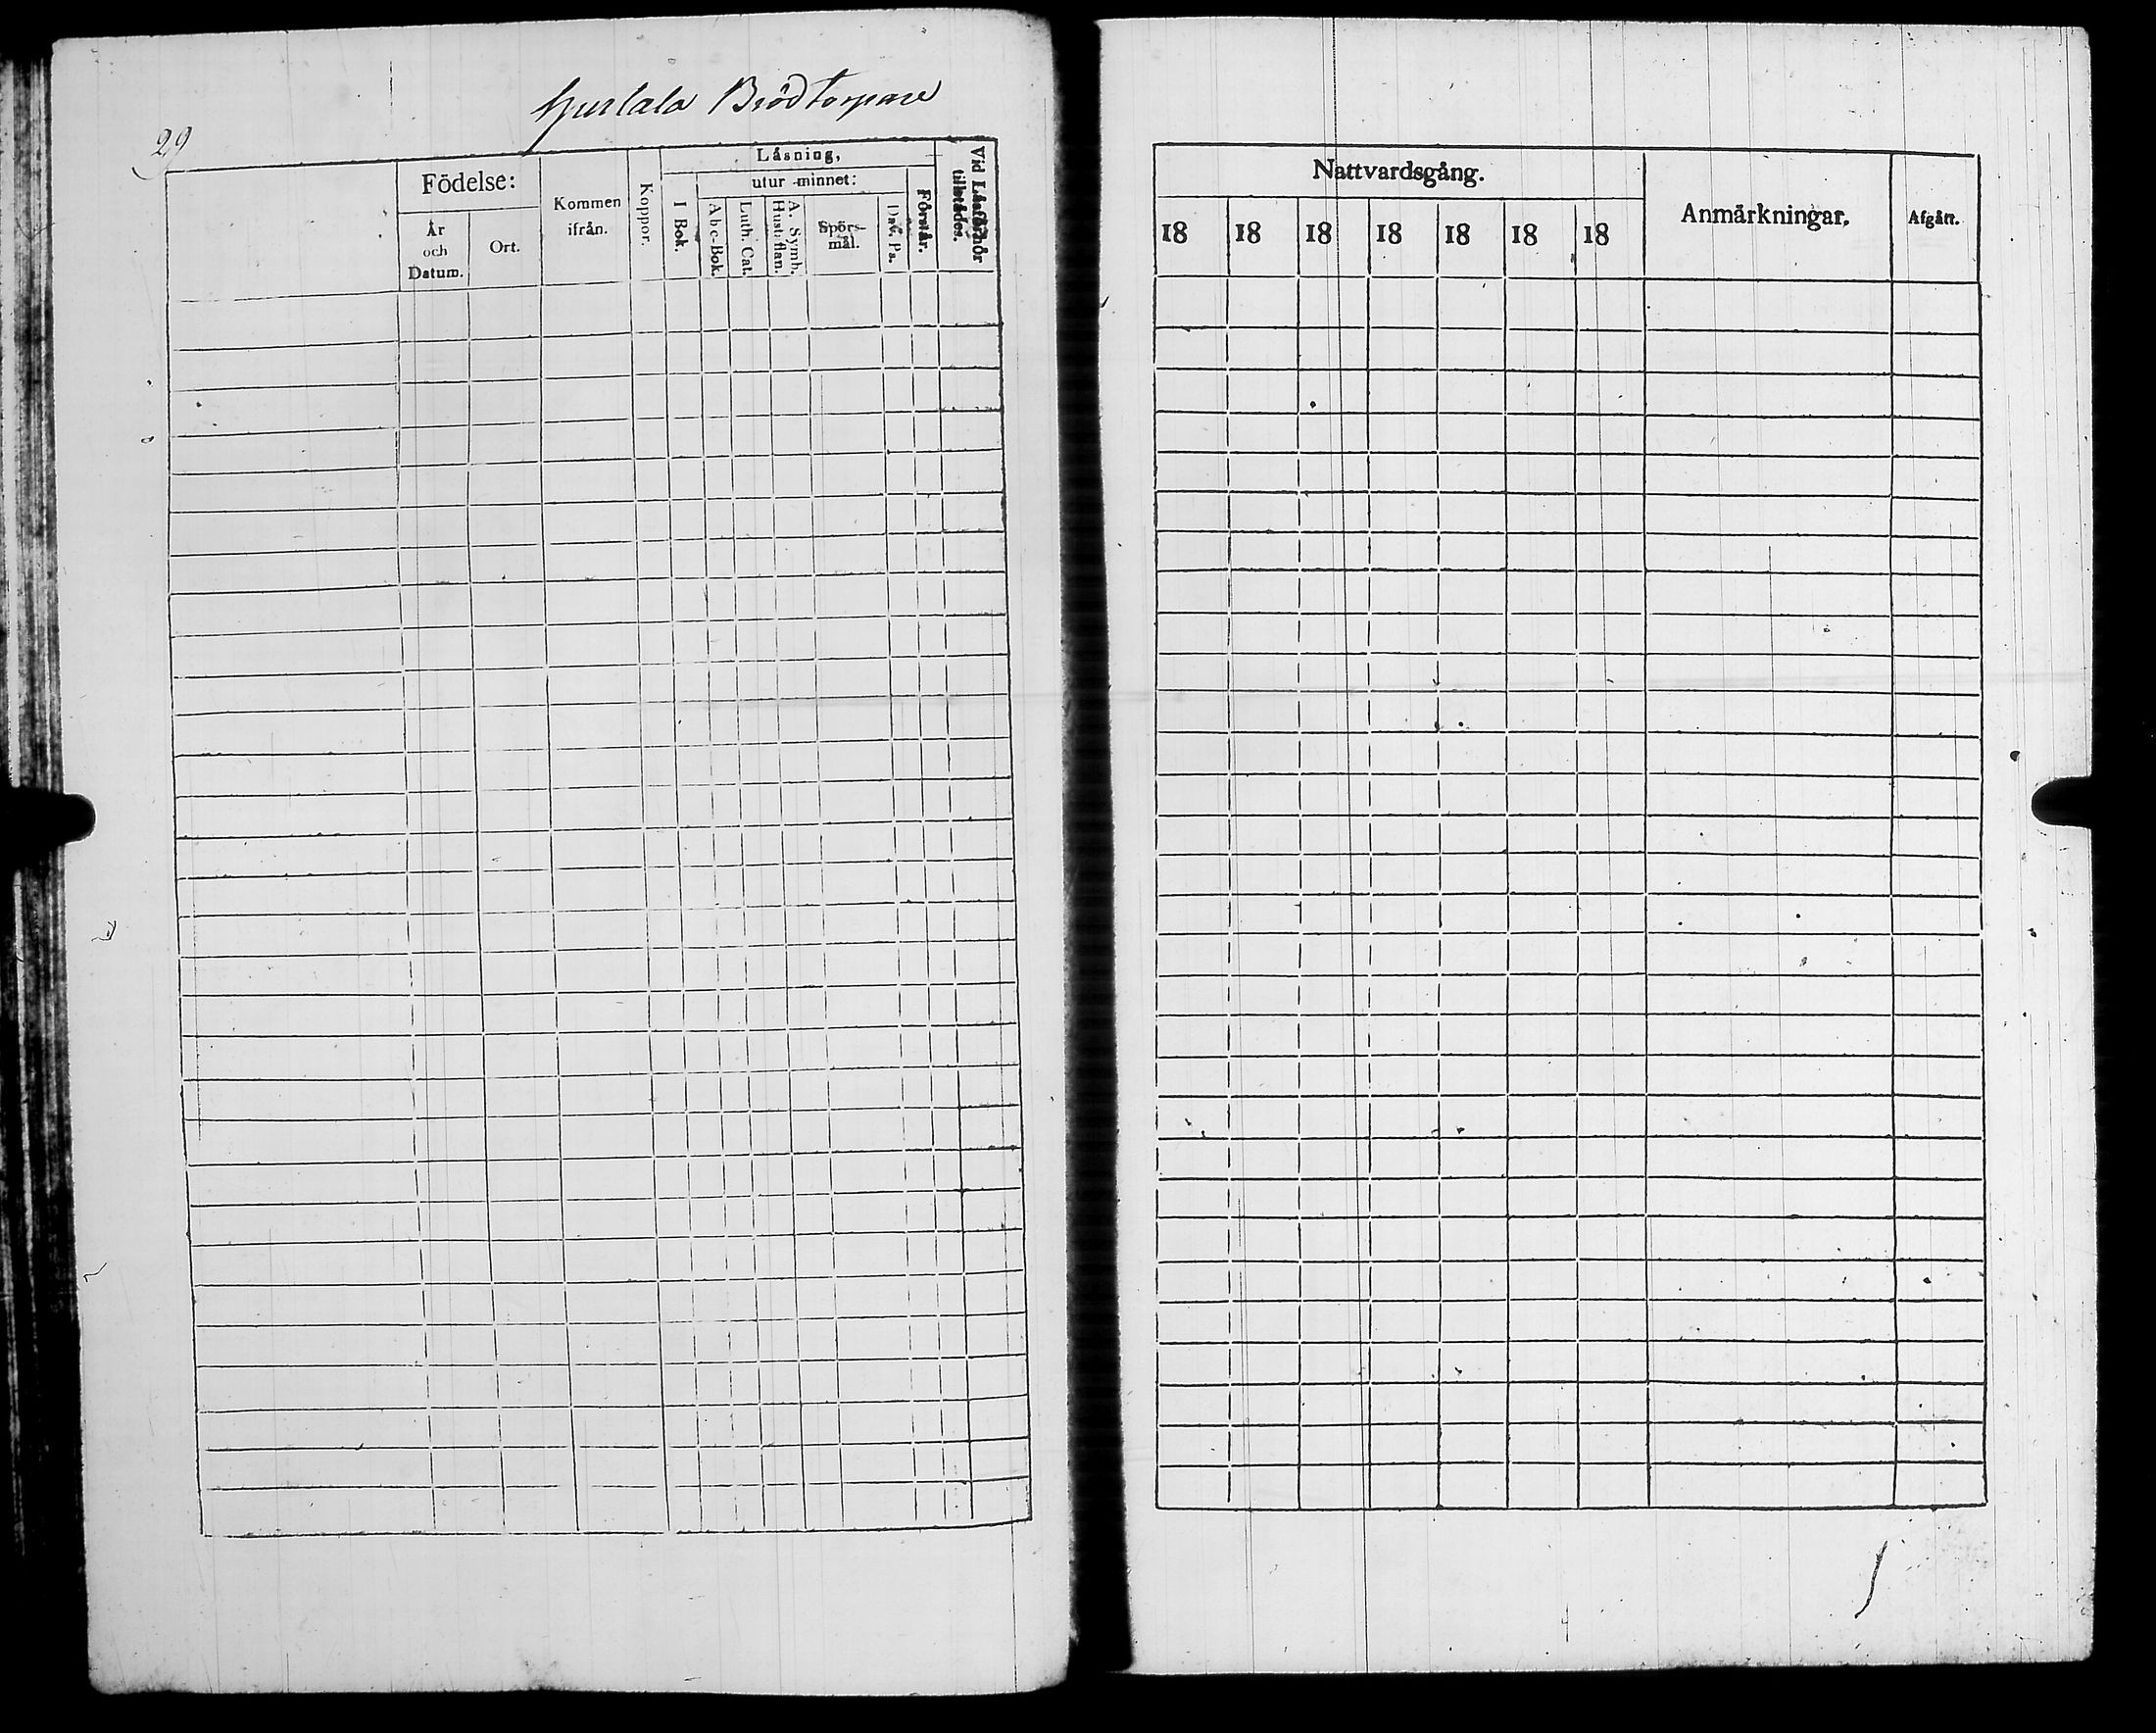 Hurlala Brödtorpare
29
Födelse:
År
och
Datum.
Ort.
Kommen
ifrån.
Koppor.
Läsning,
utur minnet:
I Bok.
Abc-Bok.
Luth. Cat.
A. Symb.
Hust: flan.
Spörs-
mål.
Dav. Ps.
Förstår.
Vid Läsförhör
tillstädes.
Nattvardsgång.
18 18 18 18 18 18 18
Anmärkningar.
Afgått.